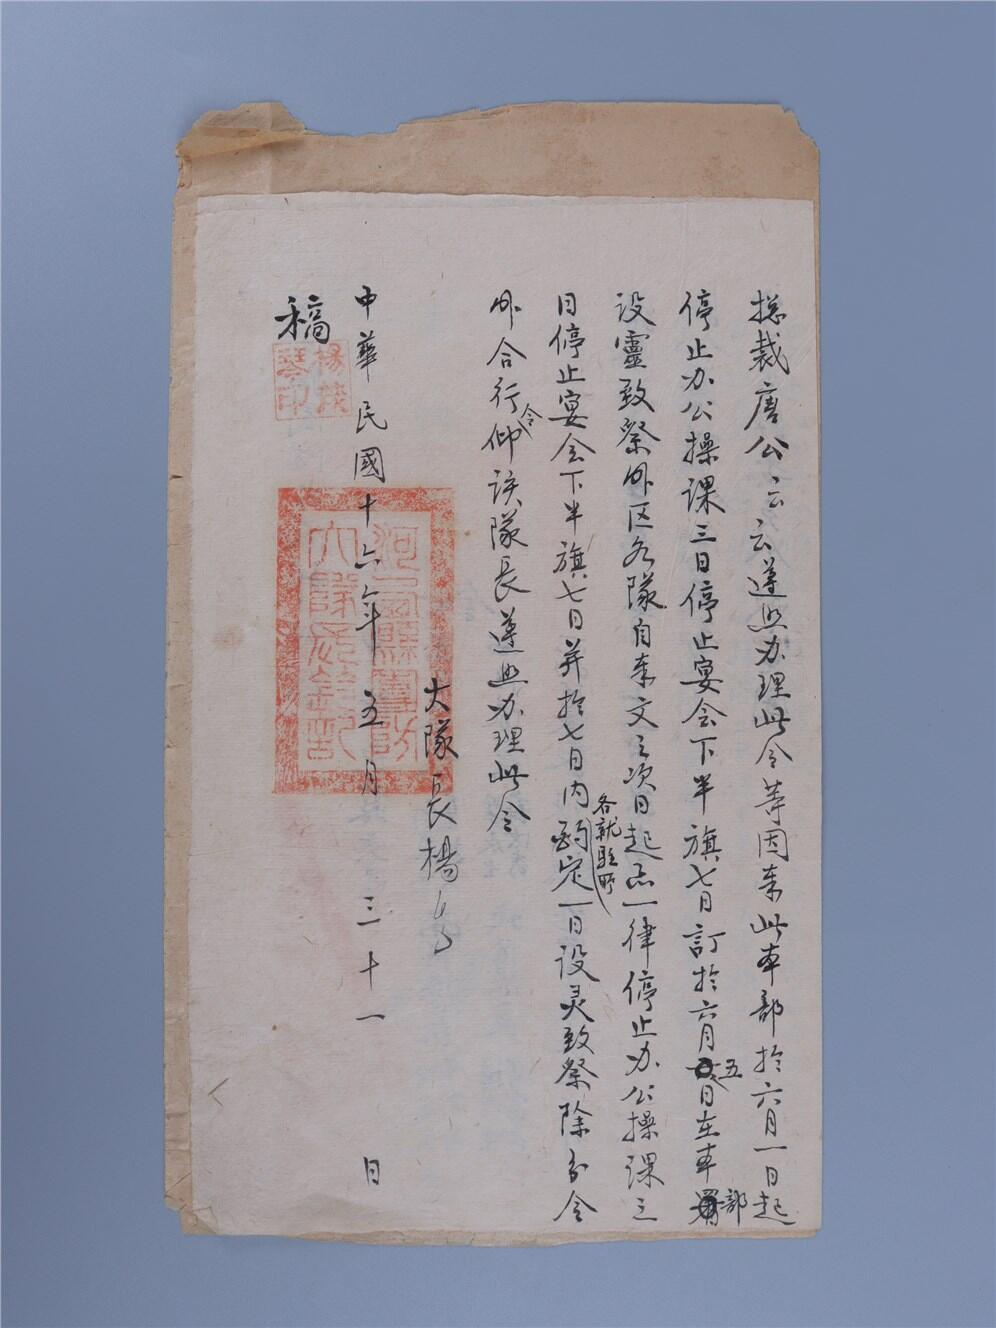 总裁唐公云云遵照办理此令等因奉此本部於六月一日起
停止办公操课三日停止宴会下半旗七日訂於六月五日在本部
设靈致祭外区各隊自奉文之次日起一律停止办公操课三
各就駐所
日停止宴会下半旗七日并於七日内酌定一日设灵致祭除分令
外合行令仰该隊長遵照办理此令
大隊長楊
中華民國十六年五月三十一日
稿